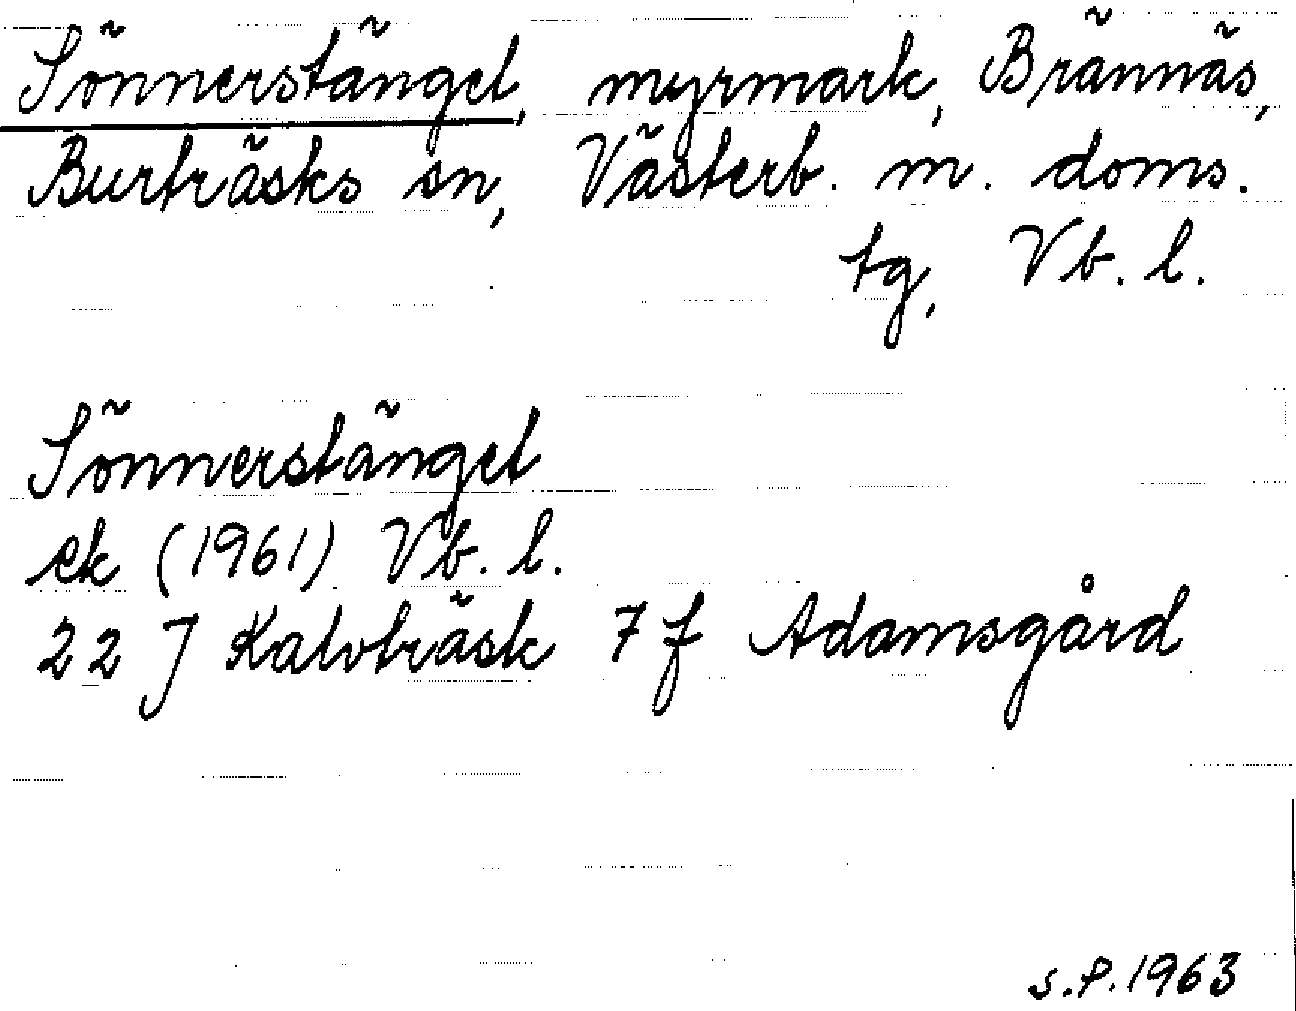 Sönnerstängel, myrmark, Brännäs,
Burträsks sn, Västerb. m. doms.
tg, Vb. l.
Sönnerstängel
ek (1961) Vb. l.
22 J Kalvträsk 7 f Adamsgård
s.P.1963